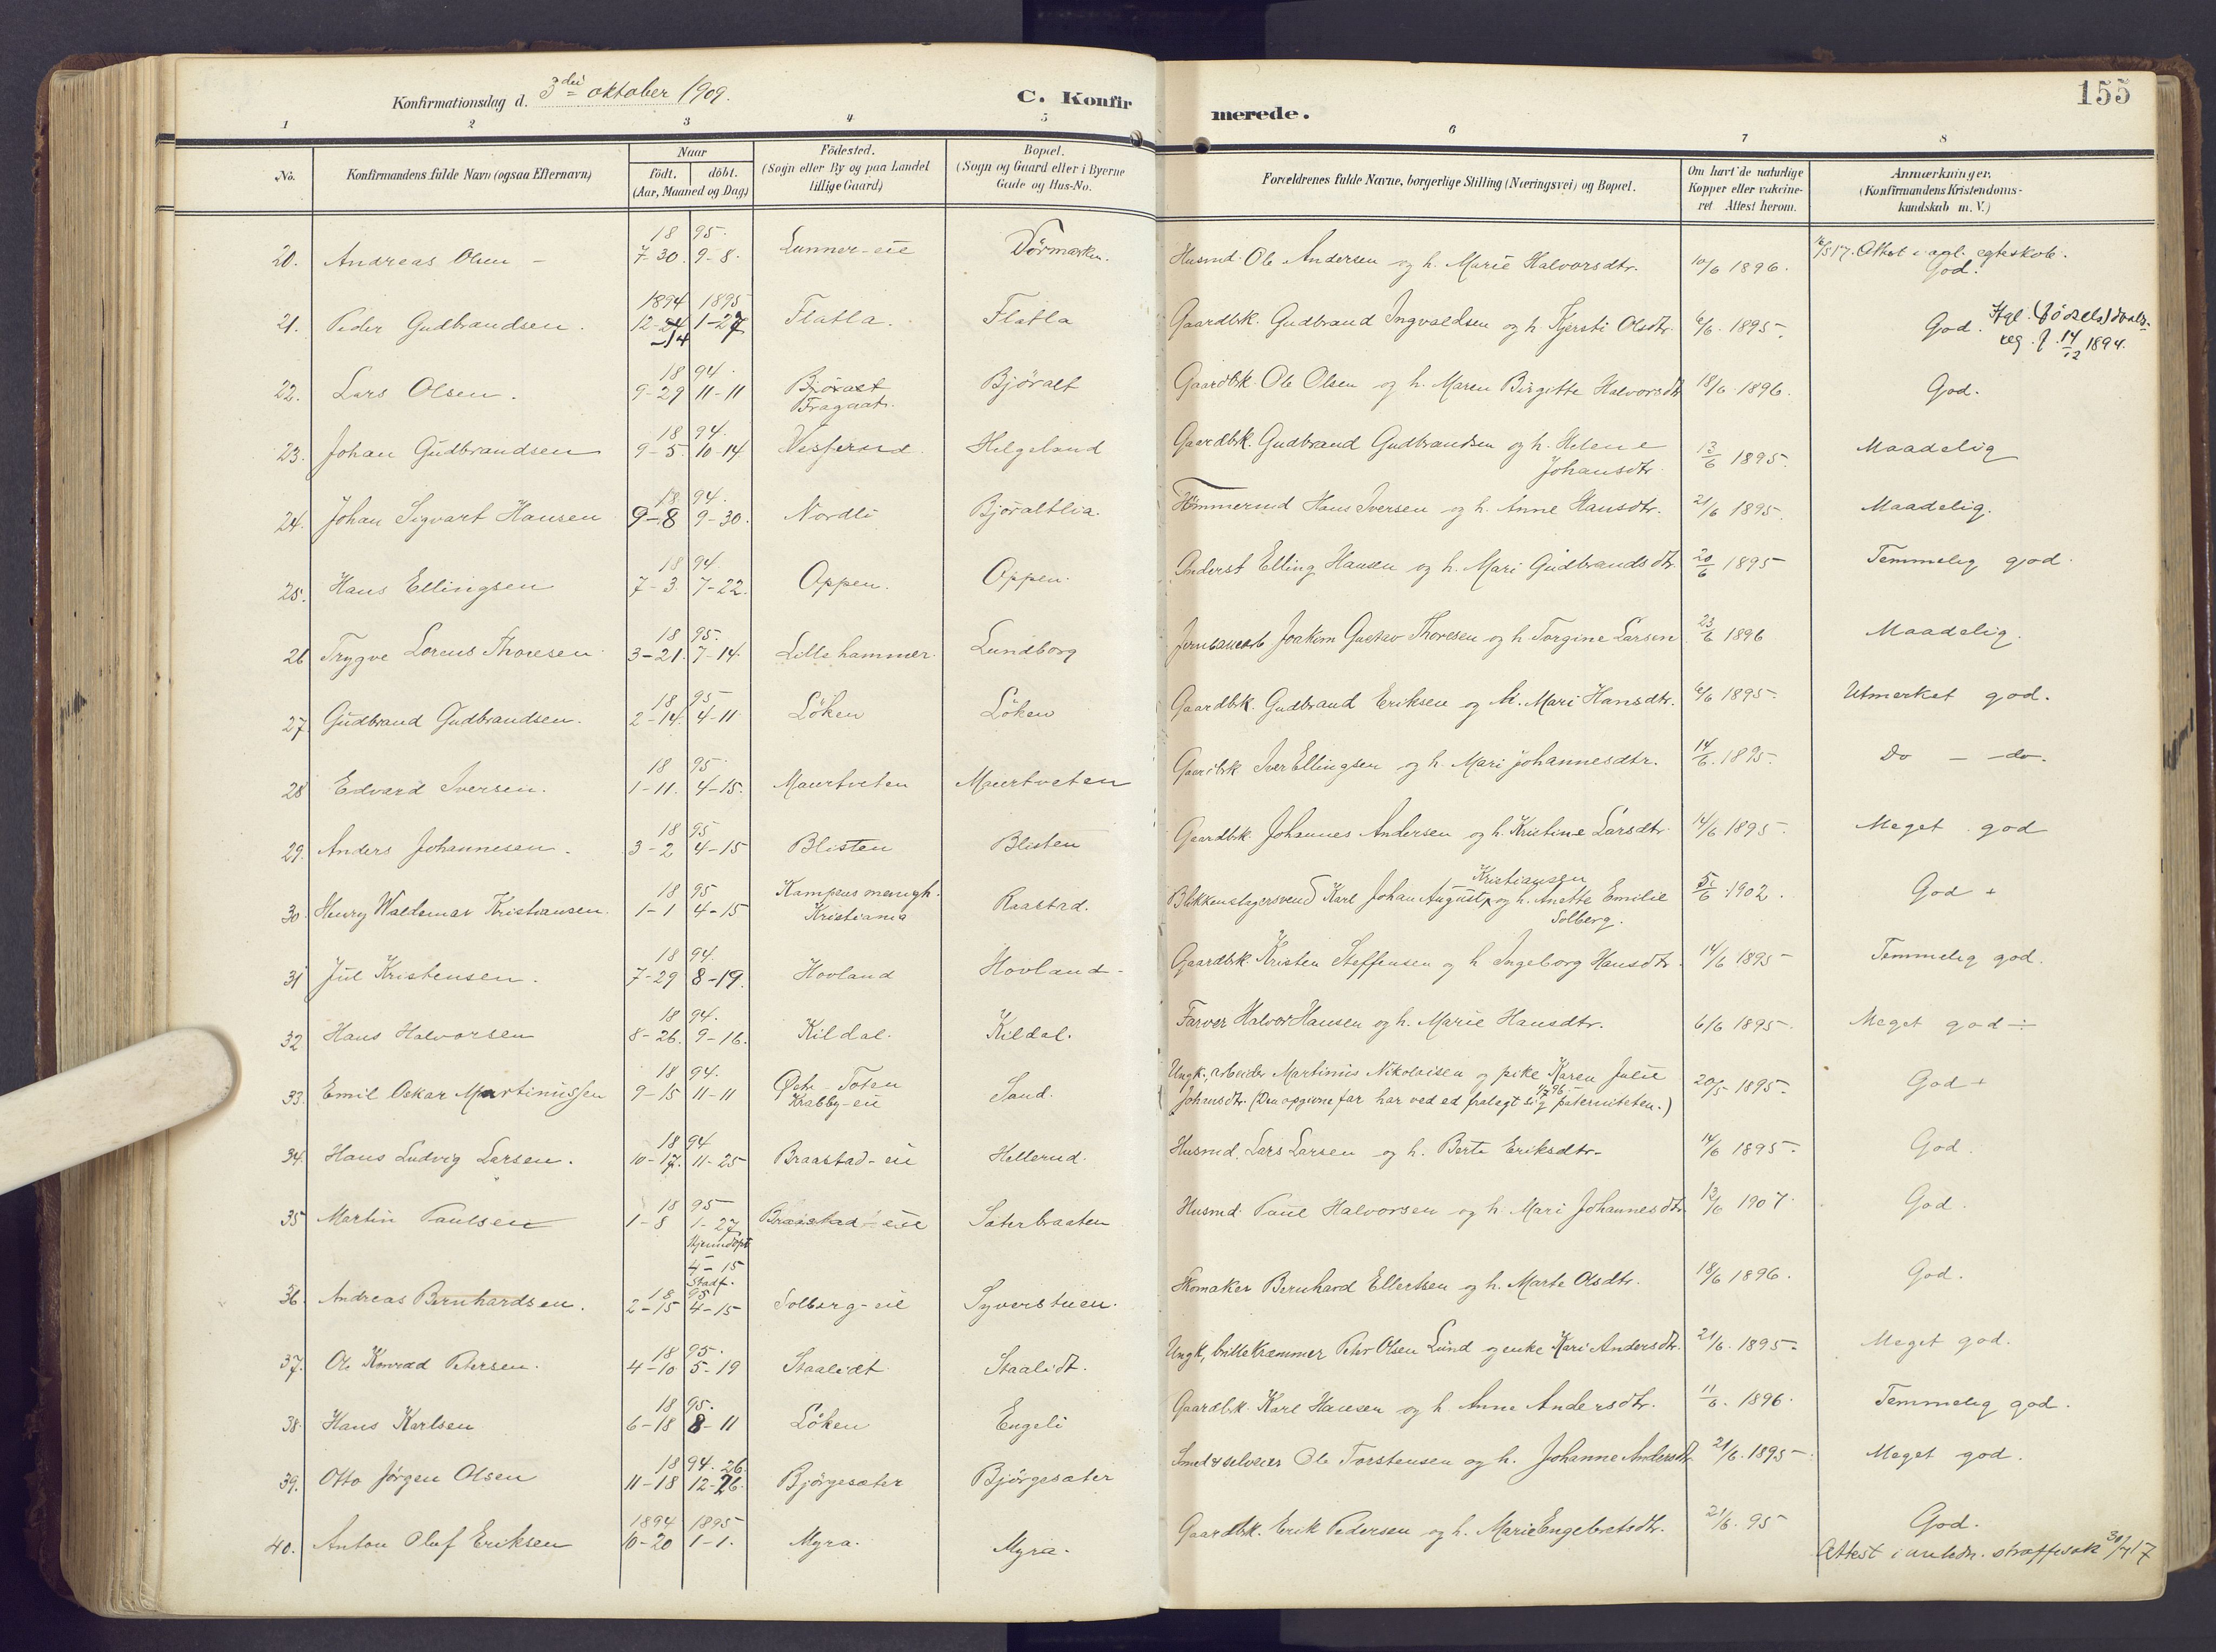 155
Konfirmationsdag d. 3die oktober 1909.
C. Konfirmerede.
1 2 3 4 5 6 7 8
No. Konfirmandens fulde Navn (ogsaa Efternavn) Naar födt. döbt. (Aar, Maaned og Dag) Födested. (Sogn eller By og paa Landet tillige Gaard) Bopæl. (Sogn og Gaard eller i Byerne Gade og Hus-No. Forældrenes fulde Navne, borgerlige Stilling (Næringsvei) og Bopæl. Om havt de naturlige Kopper eller vakcineret Attest herom. Anmærkninger. (Konfirmandens Kristendomskundskab m. V.)
20. Andreas Olsen - 1895. 7-30. 9-8. Lunner-eie Dörmarken. Husmd. Ole Andersen og h. Marie Halvorsdtr. 10/6 1896. Attest i egteskab. God.
21. Peder Gudbrandsen. 1894 1895 12-24 -14 1-27 Flatla. Flatla Gaardbk. Gudbrand Ingvaldsen og h. Kjersti Olsdtr. 6/6. 1895. God. 14/12 1894.
22. Lars Olsen. 1894. 9-29 11-11 Björalt Björalt Gaardbk. Ole Olsen og h. Maren Birgitte Halvorsdtr 18/6 1896. God.
23. Johan Gudbrandsen 1894. 9-5. 10-14 Helgeland Gaardbk. Gudbrand Gudbrandsen og h. Helene Johansdtr. 13/6 1895. Maadelig
24. Johan Sigvart Hansen 1894. 9-8 9-30. Nordli Björaltlia. Hans Iversen og h. Anne Hansdtr. 21/6 1895. Maadelig.
25. Hans Ellingsen 1894. 7-3. 7-22. Oppen. Oppen. Elling Hansen og h. Mari Gudbrandsdtr. 20/6 1895 Temmelig god.
26 Trygve Lorens Thoresen 1895. 3-21. 7-14. Lillehammer. Lundborg Joakim Gustav Thoresen og h. Torgine Larsen 23/6 1896 Maadelig.
27. Gudbrand Gudbrandsen. 1895 2-14. 4-11 Löken Löken Gaardbk. Gudbrand Eriksen og h. Mari Hansdtr. 6/6 1895. Utmerket god.
28 Edvard Iversen. 1895 1-11. 4-15. Maurtveten Maurtveten Gaardbk Iver Ellingsen og h. Mari Johannesdtr. 14/6. 1895. Do - do.
29. Anders Johannesen. 1895 3-2 4-15 Blisten Blisten Gaardbk. Johannes Andersen og h. Kristine Larsdtr. 14/6 1895. Meget god
30. Henry Waldemar Kristiansen. 1895 1-1 4-15 Kampens menigh. Kristiania Raastad. Blikkenslagersvend Karl Johan August Kristiansen og h. Anette Emilie Solberg. 5/6 1902. God +
31 Jul Kristensen. 1894. 7-29 8-19. Hovland Hovland Gaardbk. Kristen Steffensen og h. Ingeborg Hansdtr. 14/6 1895 Temmelig god.
32 Hans Halvorsen 1894. 8-26. 9-16. Kildal. Kildal. Farver Halvor Hansen og h. Marie Hansdtr. 6/6 1895. Meget god ÷
33. Emil Oskar Martinussen 1894. 9-15 11-11 Østr-Toten Krabby-eie Sand. Ungk, arbeider Martinus Nikolaisen og pike Karen Julie Johansdtr. (Den opgivne far har ved ed fralagt sig paterniteten.) 20/5 1895. God +
34. Hans Ludvig Larsen. 1894 10-17. 11-25 Braastad-eie Hellerud. Husmd. Lars Larsen og h. Berte Eriksdtr. 14/6 1895. God.
35 Martin Paulsen 1895 1-8 1-27 Hjemdöpt 4-15 Stadf. Braastad-eie Säterbraaten Husmd. Paul Halvorsen og h. Mari Johannesdtr. 12/6 1907. God.
36. Andreas Bernhardsen. 1895 2-15 4-15 Solberg-eie Syverstuen. Skomaker Bernhard Ellertsen og h. Marte Olsdtr. 18/6 1896. God.
37. Ole Konrad Petersen. 1895. 4-10 5-19 Staalidt Staalidt. Ungk, Peter Olsen Lund og enke Kari Andersdtr. 21/6. 1895. Meget god.
38. Hans Karlsen 1895. 6-18 8-11 Löken Engeli Gaardbk. Karl Hansen og h. Anne Andersdtr. 11/6. 1896. Temmelig god.
39. Otto Jörgen Olsen 1894. 26. 11-18 12-26. Björgesæter Björgesæter Ole Torstensen og h. Johanne Andersdtr 21/6. 1895 Meget god.
40. Anton Oluf Eriksen 1894 1895 10-20 1-1. Myra. Myra. Gaardbk. Erik Pedersen og h. Marie Engebretsdtr. 21/6. 95 God.
Attest i anledn. straffesak 30/7 17